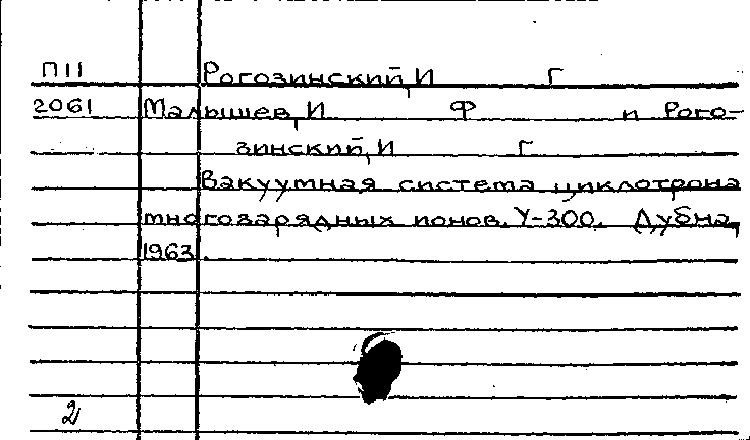 П11 Рогозинский, И Г
2061 Малышев, И Ф и Рого-
зинский, И Г
Вакуумная система циклотрона
многозарядных ионов У-300. Дубна,
1963.
2